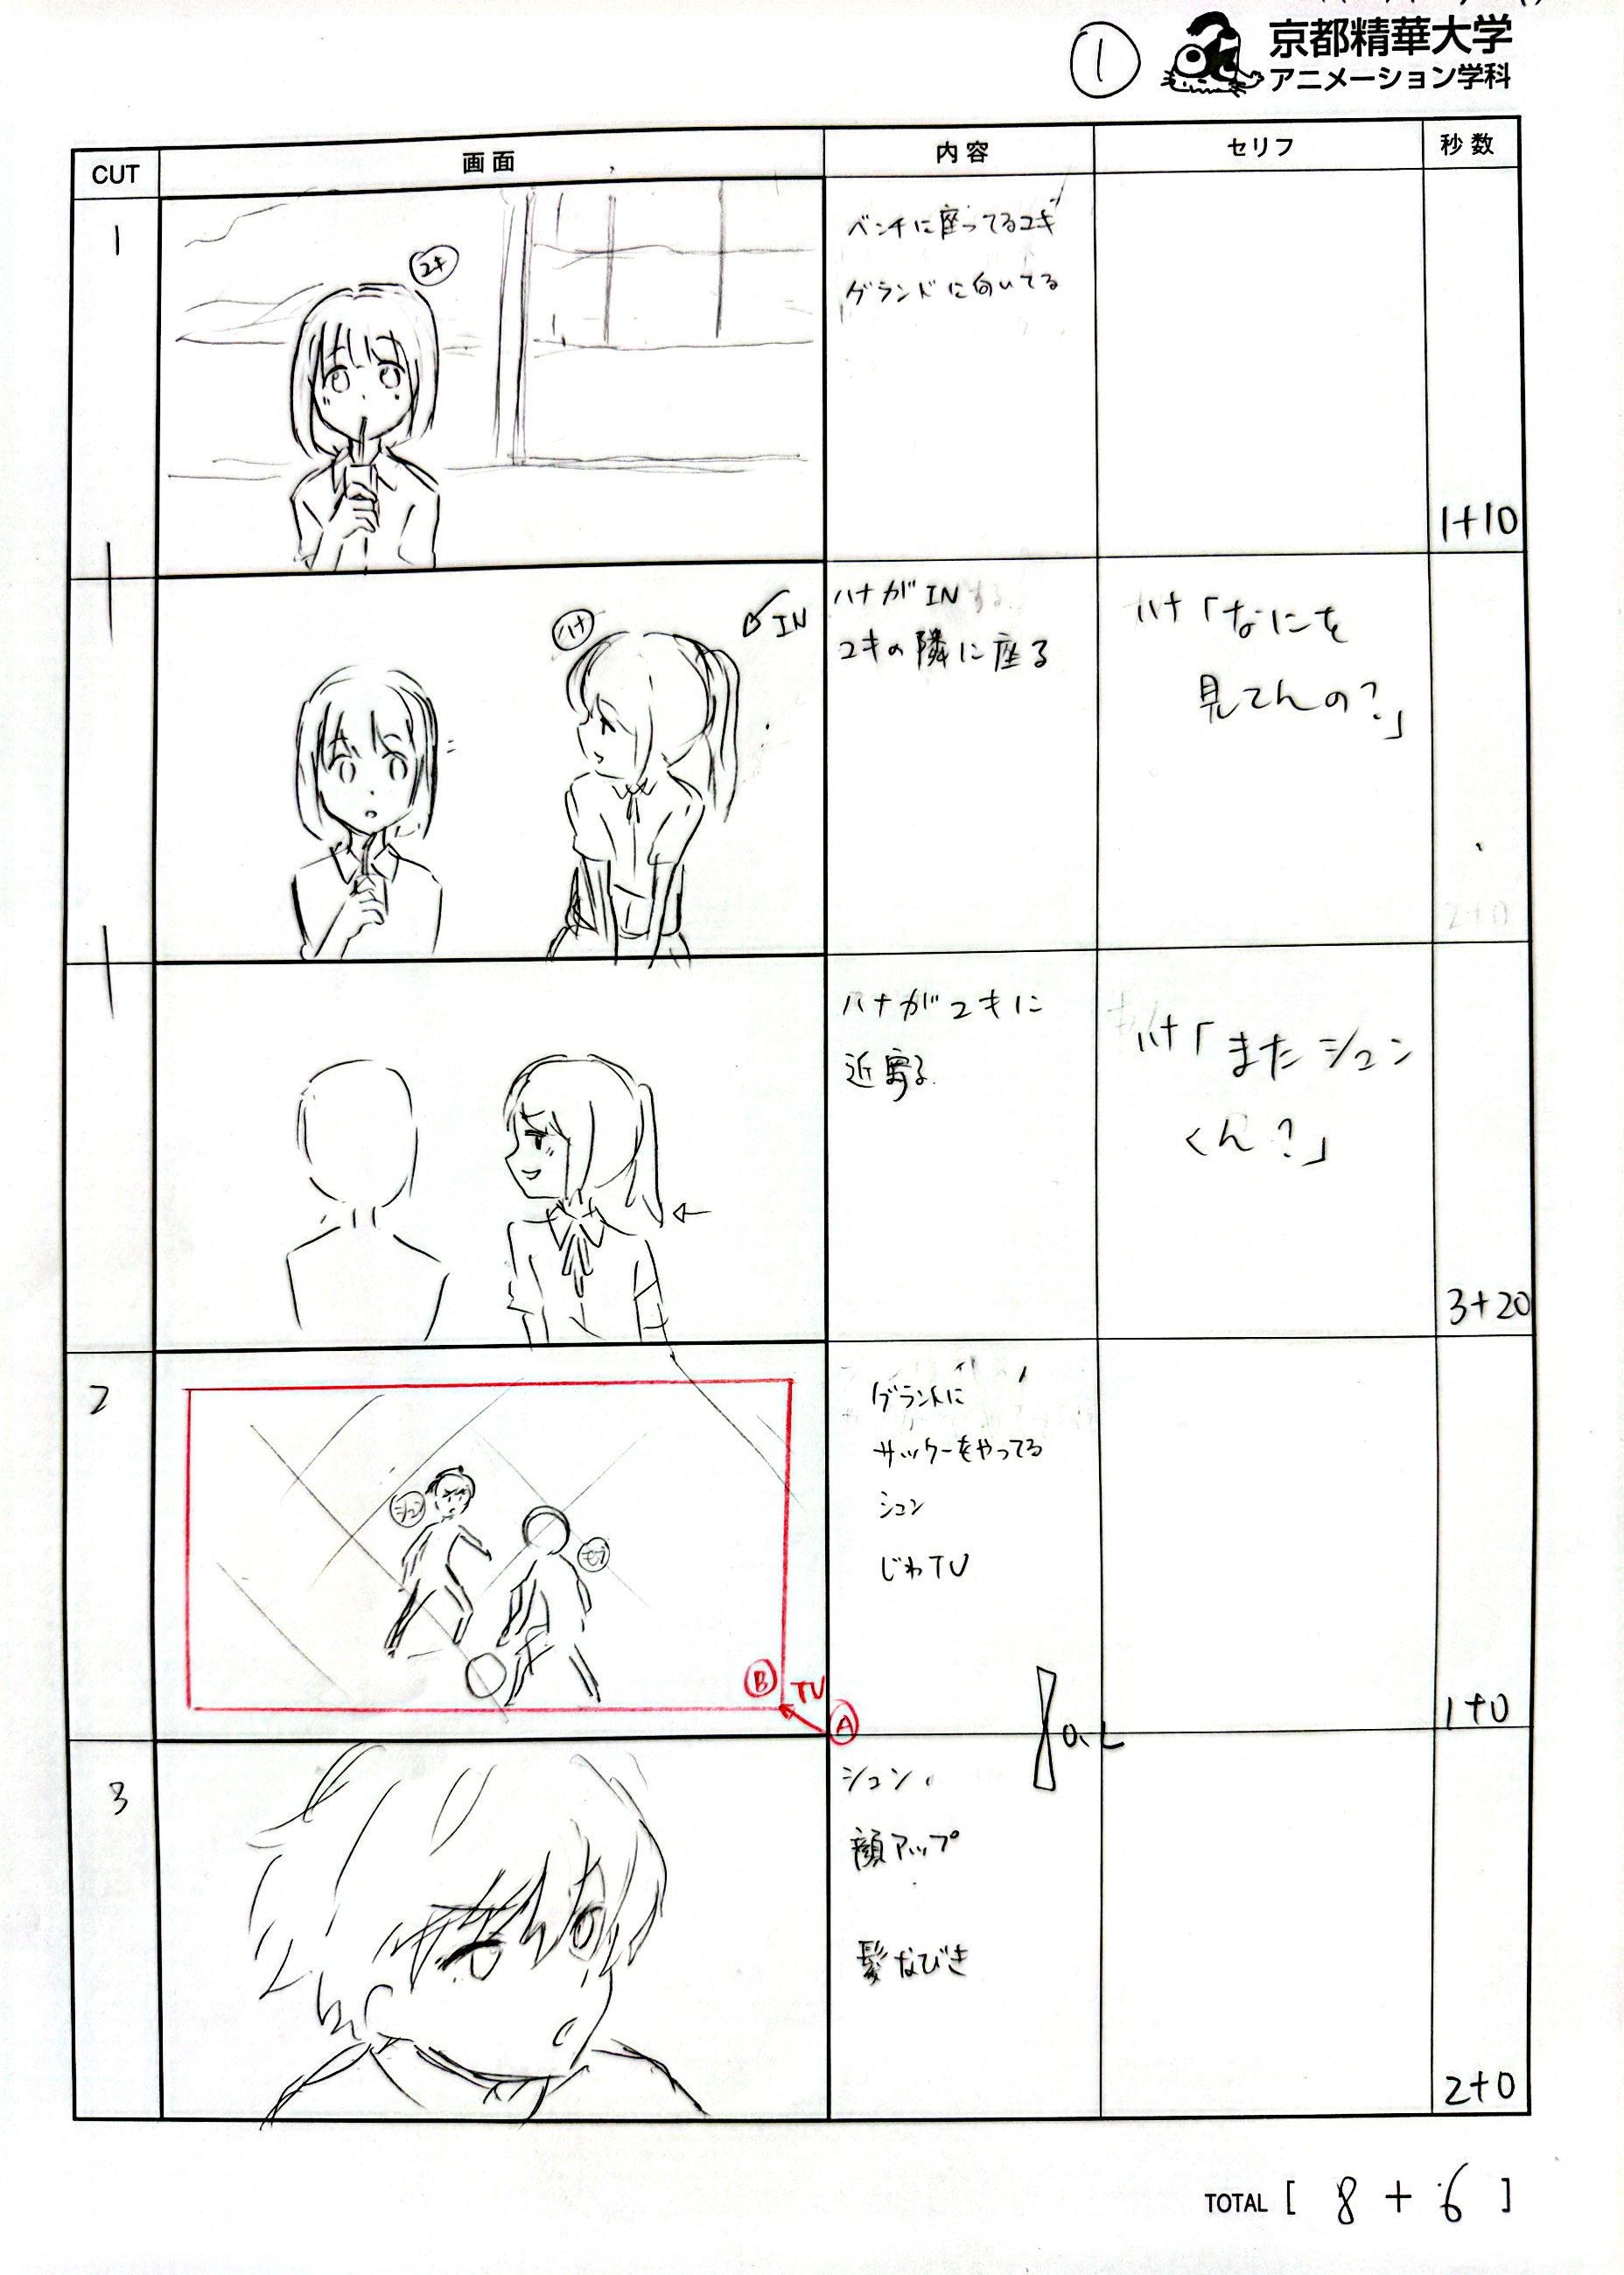 ①
京都精華大学
アニメーション学科
CUT 画面 内容 セリフ 秒数
1
ユキ
ベンチに座ってるユキ
グランドに向いてる
1+10
ハナ
IN
ハナがIN
ユキの隣に座る
ハナ「なにを
見てんの?」
2+0
ハナがユキに
近寄る
ハナ「またシュン
くん?」
3+20
2
シュン
モブ
B
TU
A
グランドに
サッカーをやってる
シュン
じわTU
1+0
O.L
3
シュン
顔アップ
髪なびき
2+0
TOTAL [ 8 + 6 ]